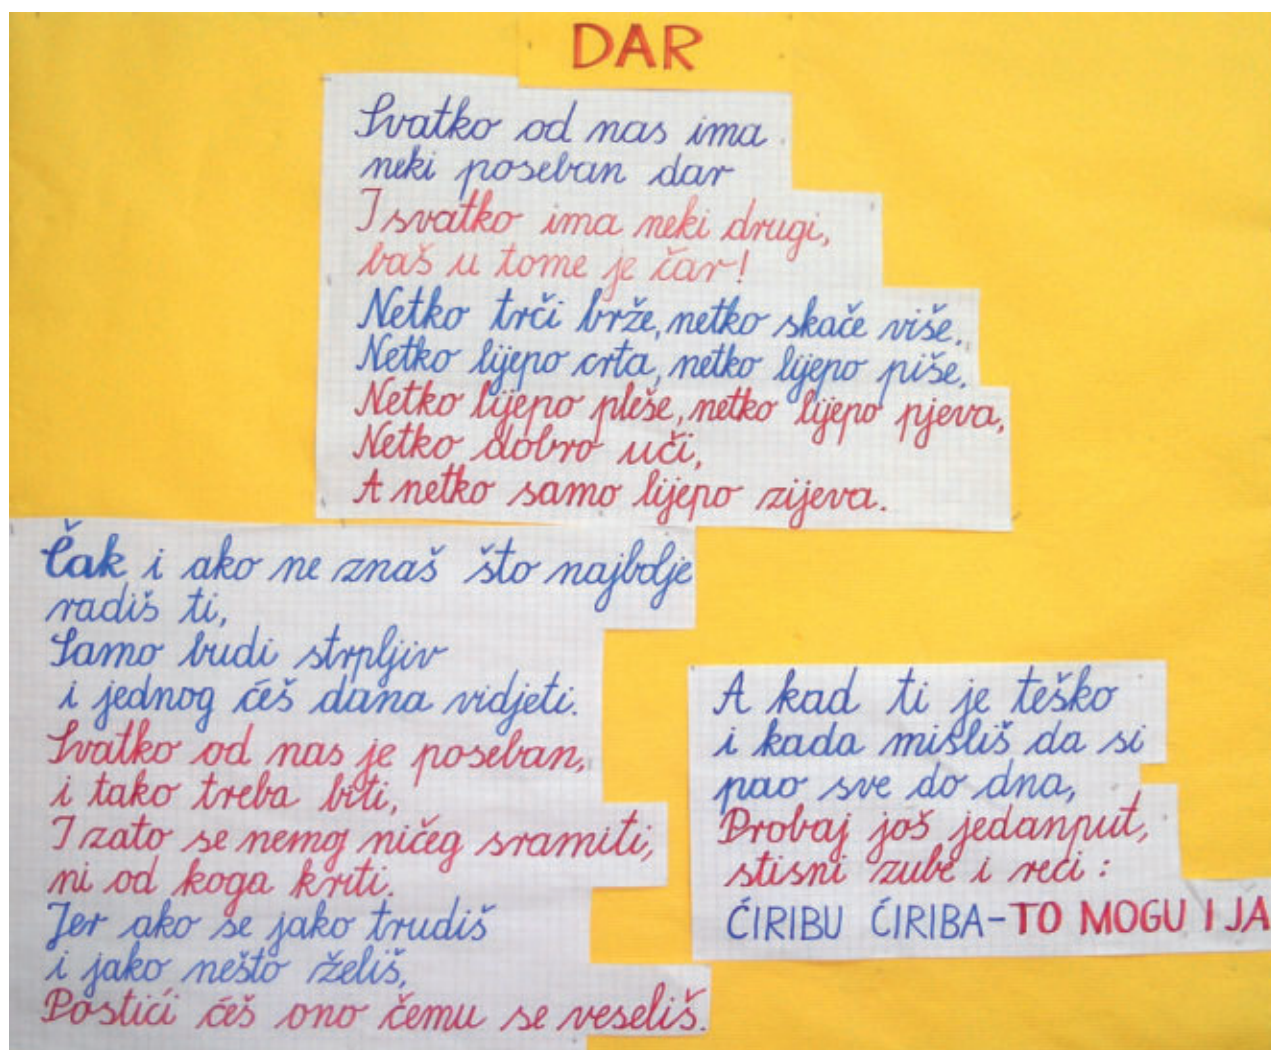 DAR
Svatko od nas ima
neki poseban dar
I svatko ima neki drugi,
baš u tome je čar!
Netko trči brže, netko skače više.
Netko lijepo crta, netko lijepo piše.
Netko lijepo pleše, netko lijepo pjeva,
Netko dobro uči,
A netko samo lijepo zijeva.
Čak i ako ne znaš što najbolje
radiš ti,
Samo budi strpljiv
i jednog ćeš dana vidjeti.
Svatko od nas je poseban,
i tako treba biti,
I zato se nemoj ničeg sramiti,
ni od koga kriti.
Jer ako se jako trudiš
i jako nešto želiš,
Postići ćeš ono čemu se veseliš.
A kad ti je teško
i kada misliš da si
pao sve do dna,
Probaj još jedanput,
stisni zube i reci:
ĆIRIBU ĆIRIBA-TO MOGU I JA